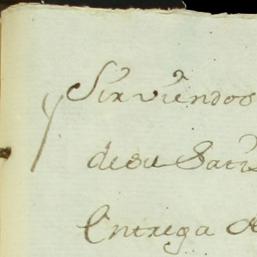 y Sirviendos
de su Satis
Entrega de